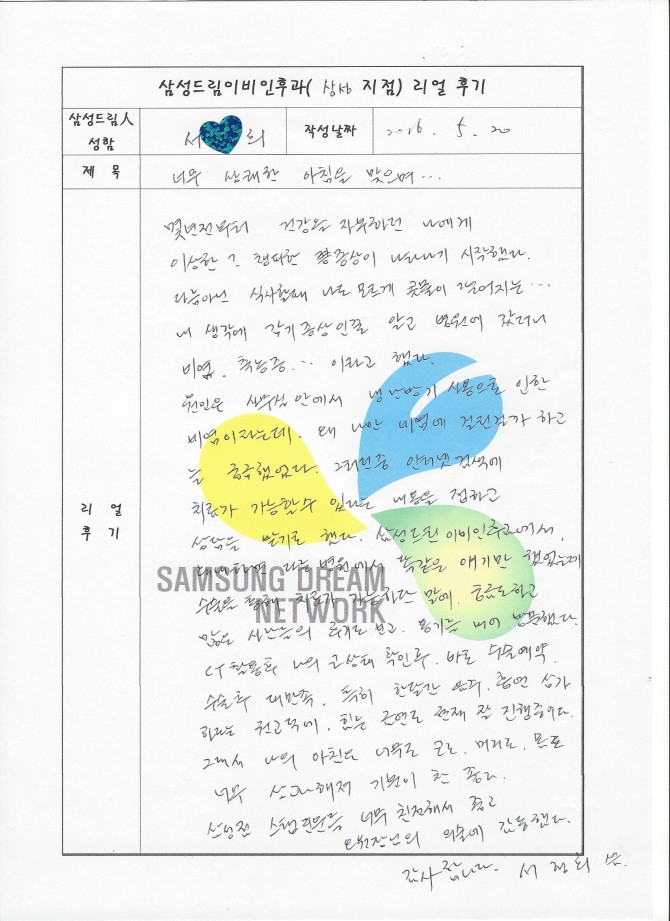 삼성드림이비인후과( 지점) 리얼 후기
삼성드림人
성함
서 희
작성날짜
2016. 5. 20
제 목
너무 상쾌한 아침을 맞으며...
몇년전부터 건강을 자부하던 나에게
이상한 증상이 나타나기 시작했다.
다름아닌 식사할때 나도 모르게 콧물이 떨어지는...
내 생각에 감기증상인줄 알고 병원에 갔더니
비염, 축농증... 이라고 했다.
원인은 사무실 안에서 냉난방기 사용으로 인한
비염이라는데. 왜 나만 비염에 걸린걸가 하고
늘 궁금했었다. 그러던중 인터넷검색에
치료가 가능할수 있다는 내용을 접하고
상담을 받기로 했다. 삼성드림이비인후과에서,
다른병원에서 똑같은 얘기만 했었는데
수술을 통해 치료가 가능하단 말에.
많은 사람들의 후기도 보고. 용기를 내어 방문했다.
CT촬영후 나의 코상태 확인후. 바로 수술예약.
수술후 대만족. 특히 한달간 음주. 흡연 삼가
하라는 권고에, 힘든 금연도 현재 잘 진행중이다.
그래서 나의 아침은 너무도 코도. 머리도. 몸도
너무 상쾌해져 기분이 참 좋다.
삼성점 스텝직원들 너무 친절해서 좋고
원장님의 의술에 감동했다.
감사합니다. 서 정 희
리 얼
후 기
SAMSUNG DREAM
NETWORK